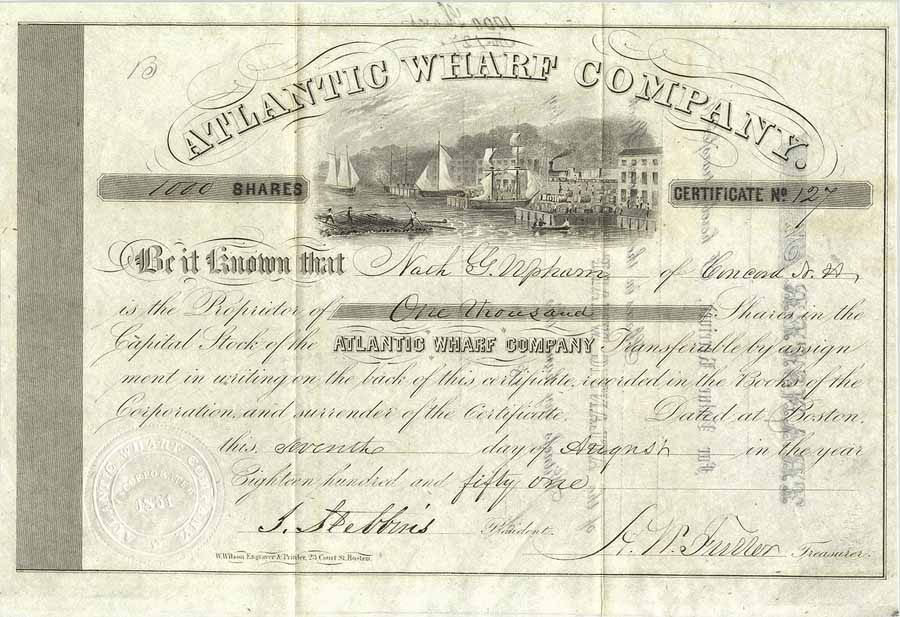 B
ATLANTIC WHARF COMPANY.
1000 SHARES
CERTIFICATE No 127
Be it Known that Nath G. Upham of Concord N. H.
is the Proprietor of One thousand Shares in the
Capital Stock of the ATLANTIC WHARF COMPANY Transferable by assign
ment in writing on the back of this certificate, recorded in the Books of the
Corporation, and surrender of the Certificate. Dated at Boston,
this seventh day of August in the year
Eighteen hundred and fifty one
ATLANTIC WHARF COMPANY
INCORPORATED
J. Stebbins President.
Treasurer.
W. Wilson Engraver & Printer, 23 Court St. Boston.